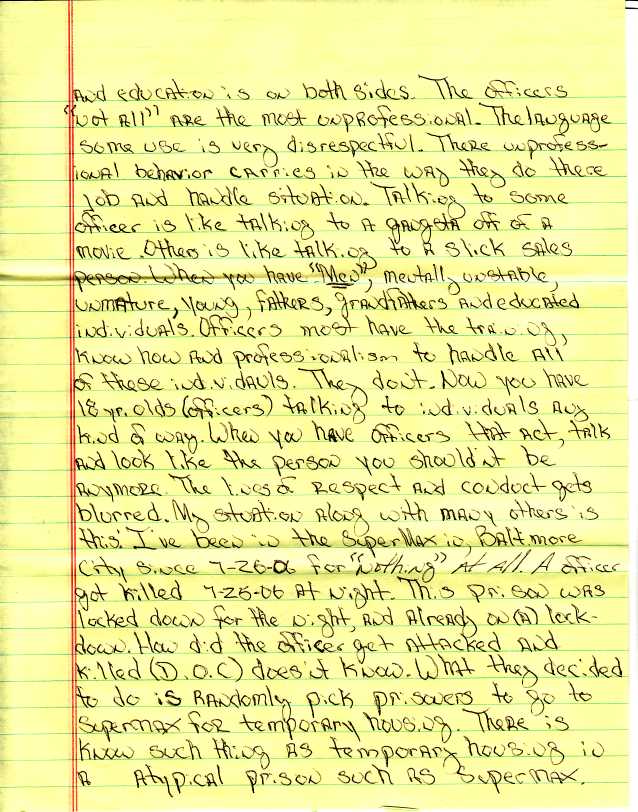 And education is on both sides. The officers
"not all" are the most unprofessional. The language
some use is very disrespectful. There unprofess-
ional behavior carries in the way they do there
job and handle situation. Talking to some
officer is like talking to a gangsta off of a
movie. Others is like talking to a slick sales
person. When you have "Men", mentally unstable,
unmature, young, fathers, grandfathers and educated
individuals. Officers most have the training,
know how and professionalism to handle all
of these individauls. They don't. Now you have
18 yr. olds (officers) talking to individuals any
kind of way. When you have officers that act, talk
and look like the person you shouldn't be
anymore. The lines of respect and conduct gets
blurred. My situation along with many others is
this. I've been in the SuperMax in, Baltimore
City since 7-26-06 for "Nothing" At All. A officer
got killed 7-25-06 at night. This prison was
locked down for the night, and already on (a) lock-
down. How did the officer get attacked and
killed (D.O.C) does'nt know. What they decided
to do is randomly pick prisoners to go to
supermax for temporary housing. There is
know such thing as temporary housing in
a atypical prison such as supermax.